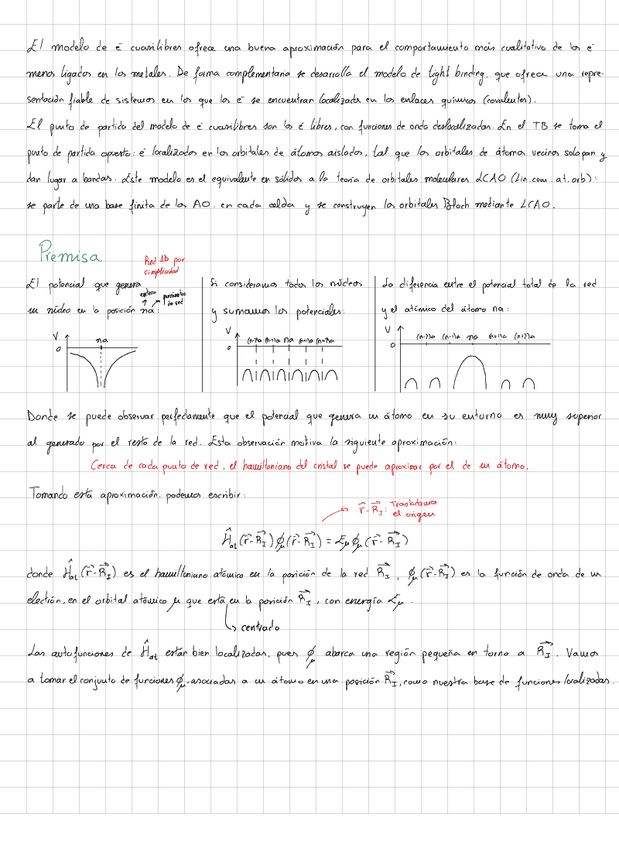 El modelo de e⁻ cuasilibres ofrece una buena aproximación para el comportamiento más cualitativo de los e⁻
menos ligados en los metales. De forma complementaria se desarrolla el modelo de tight binding, que ofrece una repre-
sentación fiable de sistemas en los que los e⁻ se encuentran localizados en los enlaces químicos (covalentes).
El punto de partida del modelo de e⁻ cuasilibres son los e⁻ libres, con funciones de onda deslocalizadas. En el TB se toma el
punto de partida opuesto: e⁻ localizados en los orbitales de átomos aislados, tal que los orbitales de átomos vecinos solapan y
dan lugar a bandas. Este modelo es el equivalente en sólidos a la teoría de orbitales moleculares LCAO (Lin. com. at. orb):
se parte de una base finita de los AO. en cada celda y se construyen los orbitales Bloch mediante LCAO.
Premisa
Red 1D por
simplicidad
El potencial que genera
entero
parámetro
de red
un núcleo en la posición na:
V
0
na
Si consideramos todos los núcleos
y sumamos los potenciales:
V
0
(n-2)a (n-1)a na (n+1)a (n+2)a
La diferencia entre el potencial total de la red
y el atómico del átomo na:
V
0
(n-2)a (n-1)a na (n+1)a (n+2)a
Donde se puede observar perfectamente que el potencial que genera un átomo en su entorno es muy superior
al generado por el resto de la red. Esta observación motiva la siguiente aproximación:
Cerca de cada punto de red, el hamiltoniano del cristal se puede aproximar por el de un átomo.
Tomando esta aproximación, podemos escribir:
r⃗-R⃗_I: Trasladamos
el origen
Ĥ_at(r⃗-R⃗_I) ϕ_μ(r⃗-R⃗_I) = ε_μ ϕ_μ(r⃗-R⃗_I)
donde Ĥ_at(r⃗-R⃗_I) es el hamiltoniano atómico en la posición de la red R⃗_I, ϕ_μ(r⃗-R⃗_I) es la función de onda de un
electrón, en el orbital atómico μ que está en la posición R⃗_I, con energía ε_μ.
centrado
Las autofunciones de Ĥ_at están bien localizadas, pues ϕ_μ abarca una región pequeña en torno a R⃗_I. Vamos
a tomar el conjunto de funciones ϕ_μ, asociadas a un átomo en una posición R⃗_I, como nuestra base de funciones localizadas.